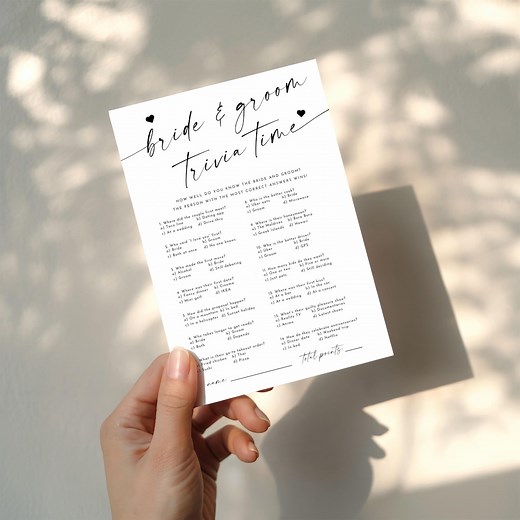 bride & groom
trivia time
HOW WELL DO YOU KNOW THE BRIDE AND GROOM?
THE PERSON WITH THE MOST CORRECT ANSWERS WINS!
1. Where did the couple first meet?
a) Taco line b) Dating app
c) At a wedding d) Dive-bar
2. Who said "I love you" first?
a) Bride b) Groom
c) Both at once d) No one knows
3. Who made the first move?
a) Alcohol b) Bride
c) Groom d) Still debating
4. Where was their first date?
a) Fancy dinner b) Cinema
c) Mini golf d) IKEA
5. How did the proposal happen?
a) On a mountain b) In bed
c) In a helicopter d) Sunset holiday
6. Who takes longer to get ready?
a) Bride b) Groom
c) Both d) Depends
What is their go-to takeout order?
Fried chicken b) Thai
d) Pizza
8. Who is the better cook?
a) Uber eats b) Bride
c) Groom d) Microwave
9. Where is their honeymoon?
a) The Maldives b) Bora Bora
c) Greek Islands d) Hawaii
10. Who is the better driver?
a) Uber b) Bride
c) Groom d) GPS
11. How many kids do they want?
a) One or two b) Five or more
c) Just pets d) Still deciding
12. Where was their first kiss?
a) At a bar b) In the car
c) At a wedding d) At a concert
13. What's their guilty pleasure show?
a) Reality TV b) Documentaries
c) Anime d) Latest shows
14. How do they celebrate anniversaries?
a) Dinner date b) Weekend trip
c) In bed d) Netflix
name
total points